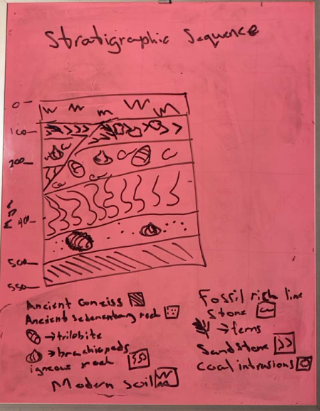 Stratigraphic Sequence
0
100
200
40
500
550
Ancient Gneiss
Ancient sedementary rock
→trilobite
→brachiopods
igneous rock
Modern soil
Fossil rich lime
Stone
→ferns
Sandstone
Coal intrusions